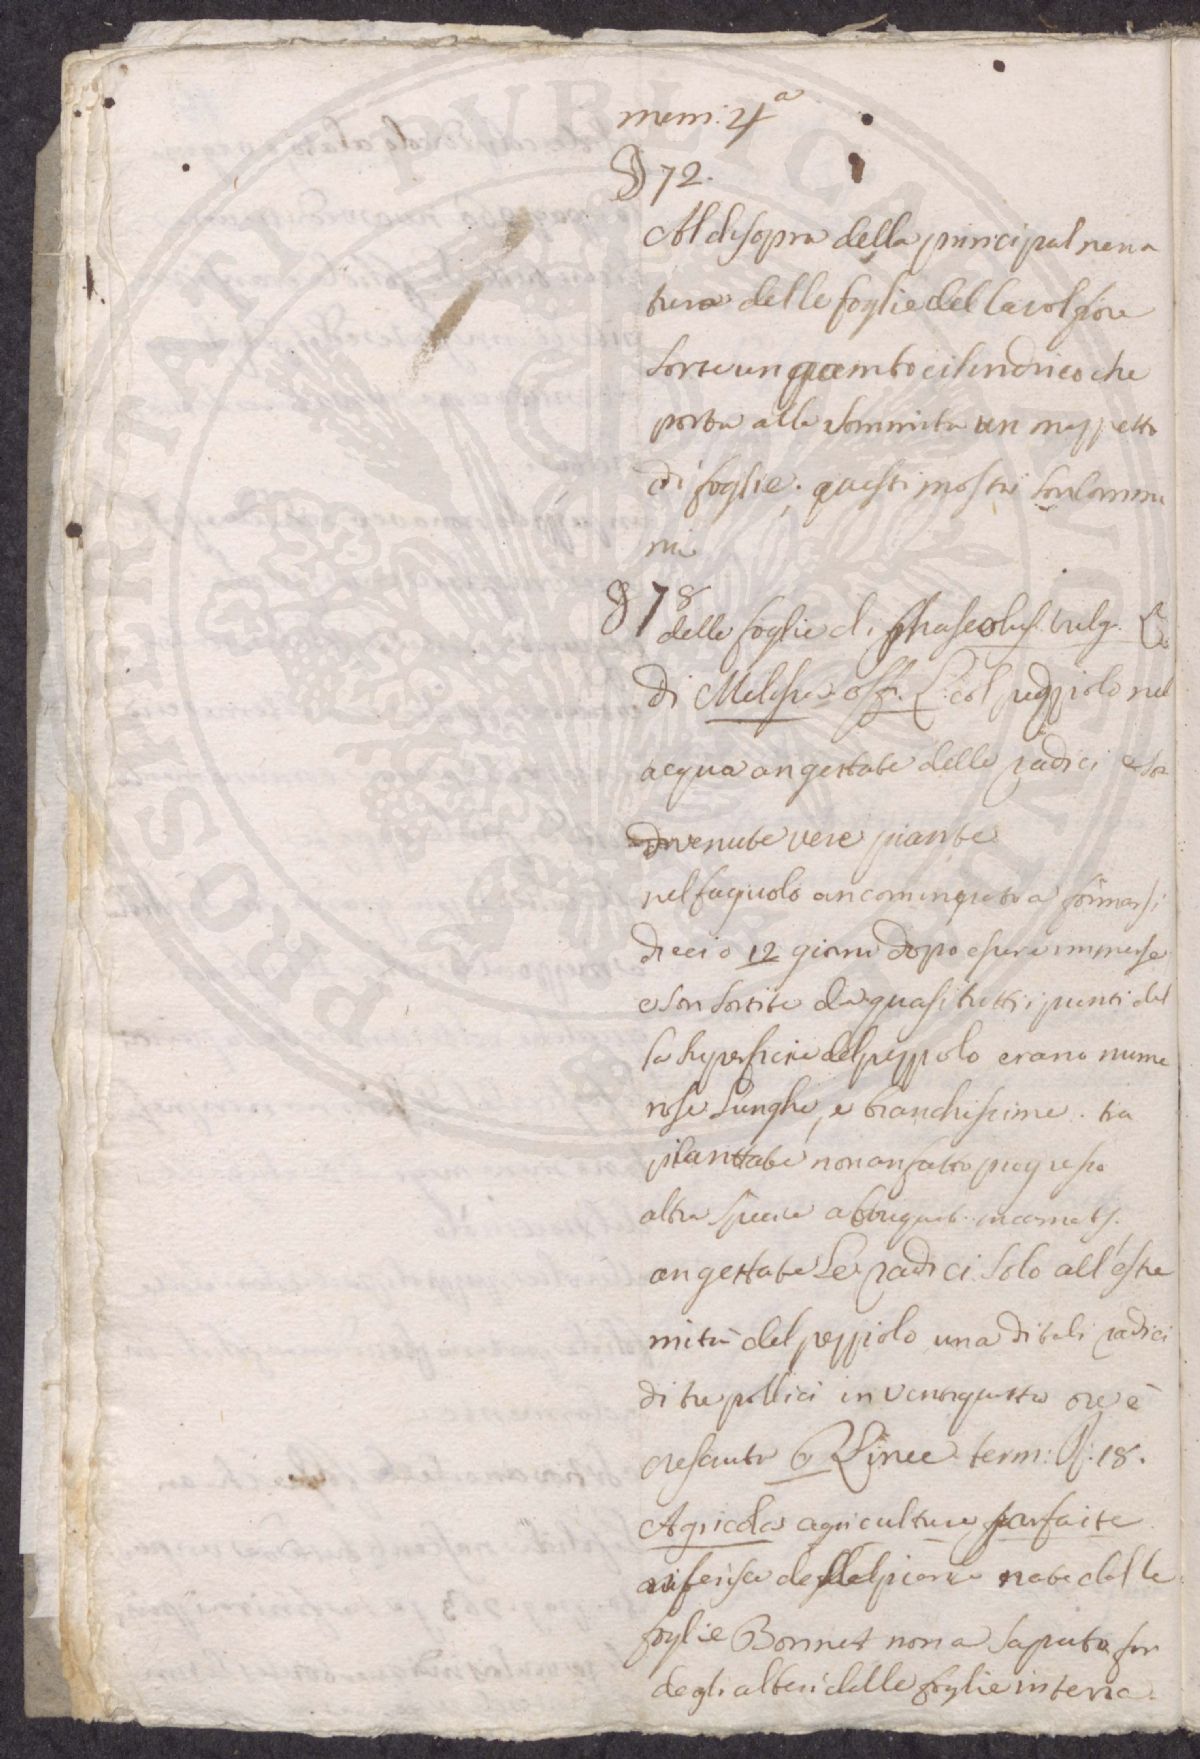 mem: 4a
§ 72.
Al disopra della principal nerva
tura delle foglie del Cavolfiore
sorte un gambo cilindrico che
porta alla sommita un mazzetto
di foglie; questi mostri son commu
ni
§ 78
delle foglie di Phaseolus. vulg. L.
di Melissa off. L. col pezziolo nel
acqua an gettate delle radici e son
divenute vere piante
nel faguolo an cominciato a formarsi
dieci o 12 giorni dopo essere immerse
e son sortite da quasi tutti i punti del
la superficie del pezziolo erano nume
rose lunghe, e bianchissime. tra
piantate non an fatto progresso
altra specie
an gettate le radici solo all'estre
mità del pezziolo una di tali radici
di tre pollici in ventiquattro ore è
cresciuta 6 Linee term: P. 18.
Agricola agriculture parfaite
riferisce delle piante nate dalle
foglie Bonnet non a saputo far
degli alberi delle foglie in terra.
PROSPERITATI PVBLICAE